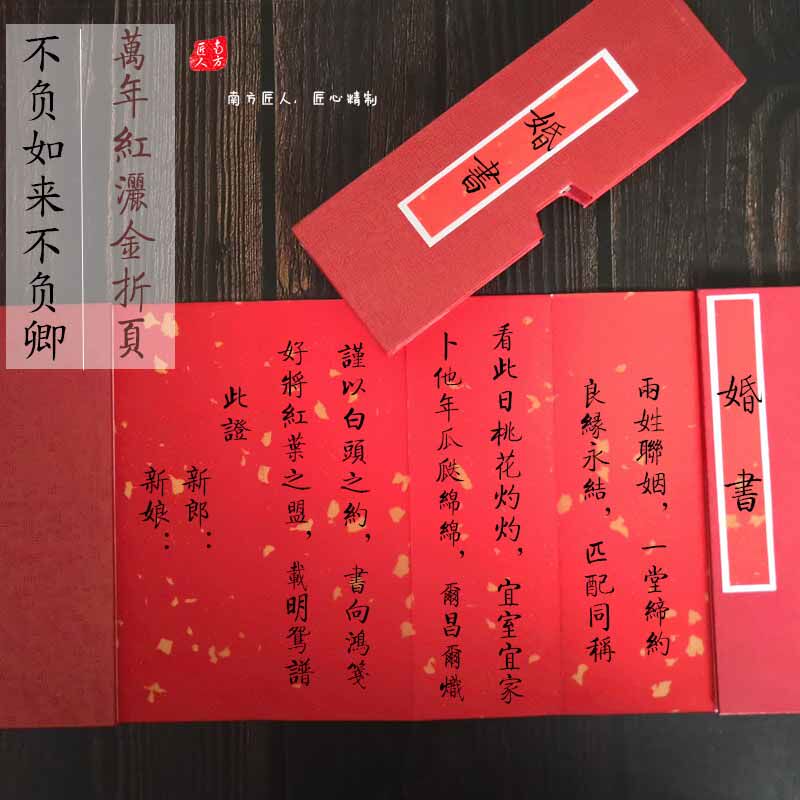 萬年紅灑金折頁
不负如来不负卿
南方匠人
南方匠人，匠心精制
婚書
婚書
兩姓聯姻，一堂締約
良緣永結，匹配同稱
看此日桃花灼灼，宜室宜家
卜他年瓜瓞綿綿，爾昌爾熾
謹以白頭之約，書向鴻箋
好將紅葉之盟，載明鴛譜
此證
新郎：
新娘：